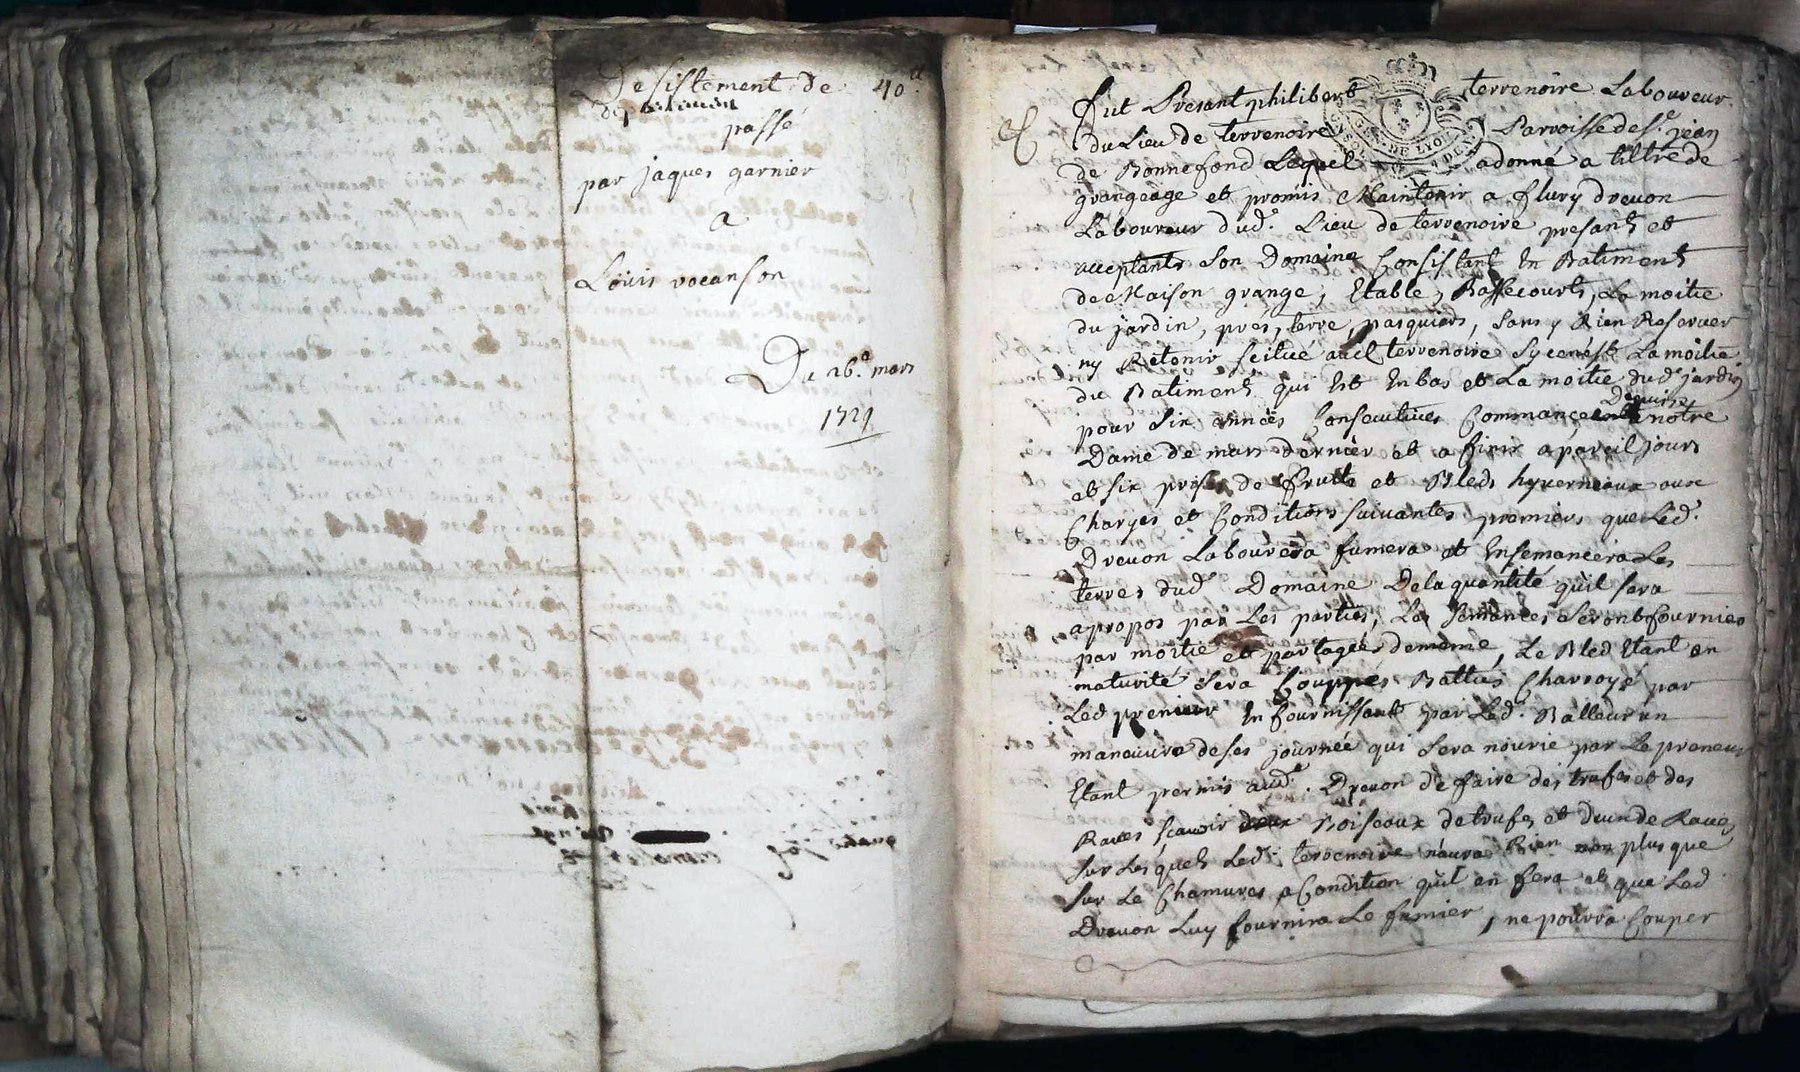 Desistement de 40ᵗᵗ
de
passé
par jaques garnier
a
Loüis vocanson
Du 26.ᵉ mars
1729
Fut Present philibert terrenoire Laboureur
du Lieu de terrenoire Parroisse de Sᵗ jean
de Bonnefond Lequel a donné a tiltre de
grangeage et promis Maintenir a flury dreuon
Laboureur dudᵗ. Lieu de terrenoire presant et
acceptants Son Domaine Consistant En Batiment
de Maison grange, Etable, Bassecourts, La moitie
du jardin, pres, terre, pasquiers, Sans y Rien Reserver
ny Retenir scitué audᵗ terrenoire Sy cenést La moitie
du Batiment qui Est En bas et La moitie dudᵗ jardin
pour Six années Consecutives Commancé Depuis notre
Dame de mars dernier et a finir a pareil jours
et six prises de fruits et Bleds hyverneaux aux
Charges et Conditions suivantes premiers que Ledᵗ.
Dreuon Labourera fumera et Ensemancera Les
terres dudᵗ Domaine De la quantité qu'il sera
apropos par Les parties, Les Semances Seront fournies
par moitie et partagées de meme, Le Bled Etant en
maturité Sera Couppés Battus Charroyé par
Led preneur En fournissant par Ledᵗ. Bailleur un
manœuvre de ses journée qui Sera nourie par Le preneur
Etant permis audᵗ. Dreuon de faire des trufes et des
Raves scavoir deux Boiseaux de trufes et d'un de Raves
sur Lesquels Ledᵗ. terrenoire n'aura Rien non plus que
sur Le Chamvres a Condition qu'il en fera et que Led
Dreuon Luy fournira Le fumier, ne pourra Couper